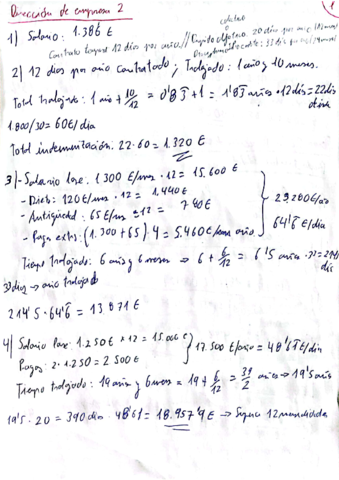 Dirección de empresa 2
1) Salario: 1.386 €
Contrato temporal 12 días por año // Despido objetivo: 20 días por año
2) 12 días por año contratado; Trabajado: 1 año y 10 meses.
Total trabajado: 1 año + 10/12 = 0'83 + 1 = 1'83 años · 12 días = 22 días
1.800/30 = 60€/día
Total indemnización: 22 · 60 = 1.320 €
3) - Salario base: 1.300 €/mes · 12 = 15.600 €
- Dieta: 120 €/mes · 12 = 1.440 €
- Antigüedad: 65 €/mes · 12 = 780 €
- Paga extra: (1.300 + 65) · 4 = 5.460 €/ año
64'6 €/día
Tiempo trabajado: 6 años y 6 meses ⇒ 6 + 6/12 = 6'5 años
33 días → año trabajado
214'5 · 64'6 = 13.871 €
4) Salario base: 1.250 € × 12 = 15.000 €
Pagas: 2 · 1.250 = 2.500 €
17.500 €/año = 48'61 €/día
Tiempo trabajado: 19 años y 6 meses = 19 + 6/12 = 39/2 años → 19'5 años
19'5 · 20 = 390 días · 48'61 = 18.957'9 € → Supera 12 mensualidades